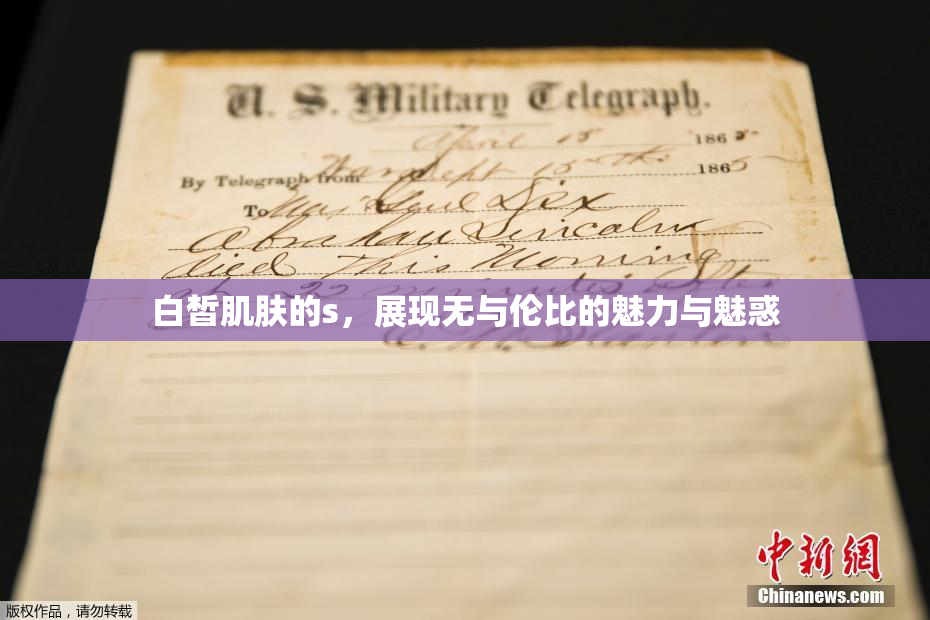 U. S. Military Telegraph.
April 15 1865
By Telegraph from War Dept 15th 1865
To Maj Genl Dix
Abraham Lincoln
died This Morning
at 22 minutes after
白皙肌肤的s，展现无与伦比的魅力与魅惑
E. M. Stanton
中新网
Chinanews.com
版权作品，请勿转载